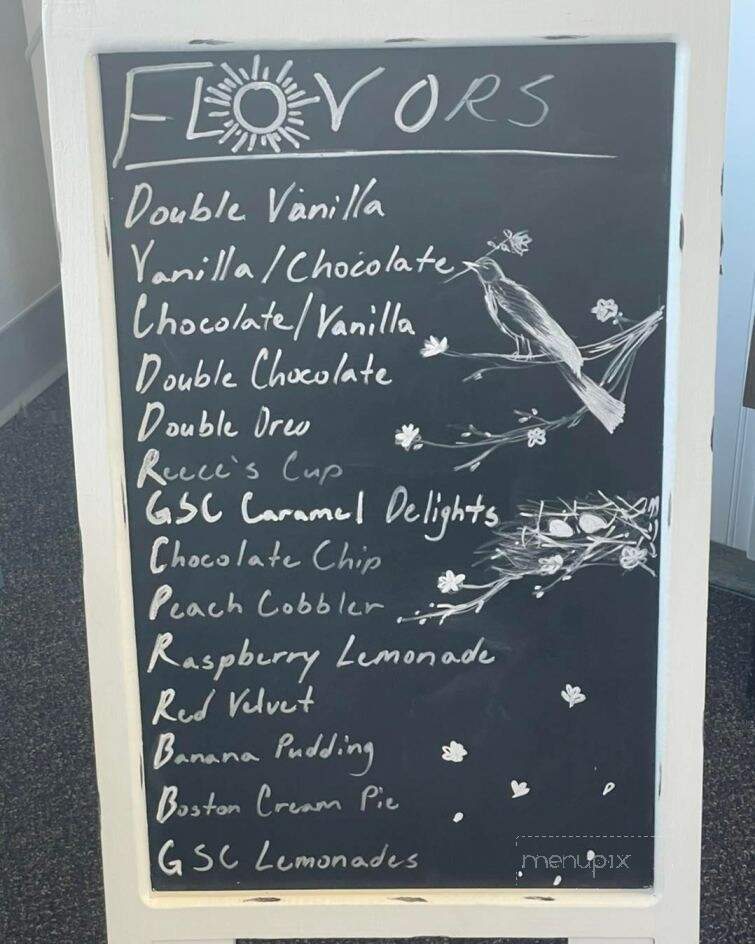 FLAVORS
Double Vanilla
Vanilla/Chocolate
Chocolate/Vanilla
Double Chocolate
Double Oreo
Reece's Cup
GSC Caramel Delights
Chocolate Chip
Peach Cobbler
Raspberry Lemonade
Red Velvet
Banana Pudding
Boston Cream Pie
GSC Lemonades
menupix